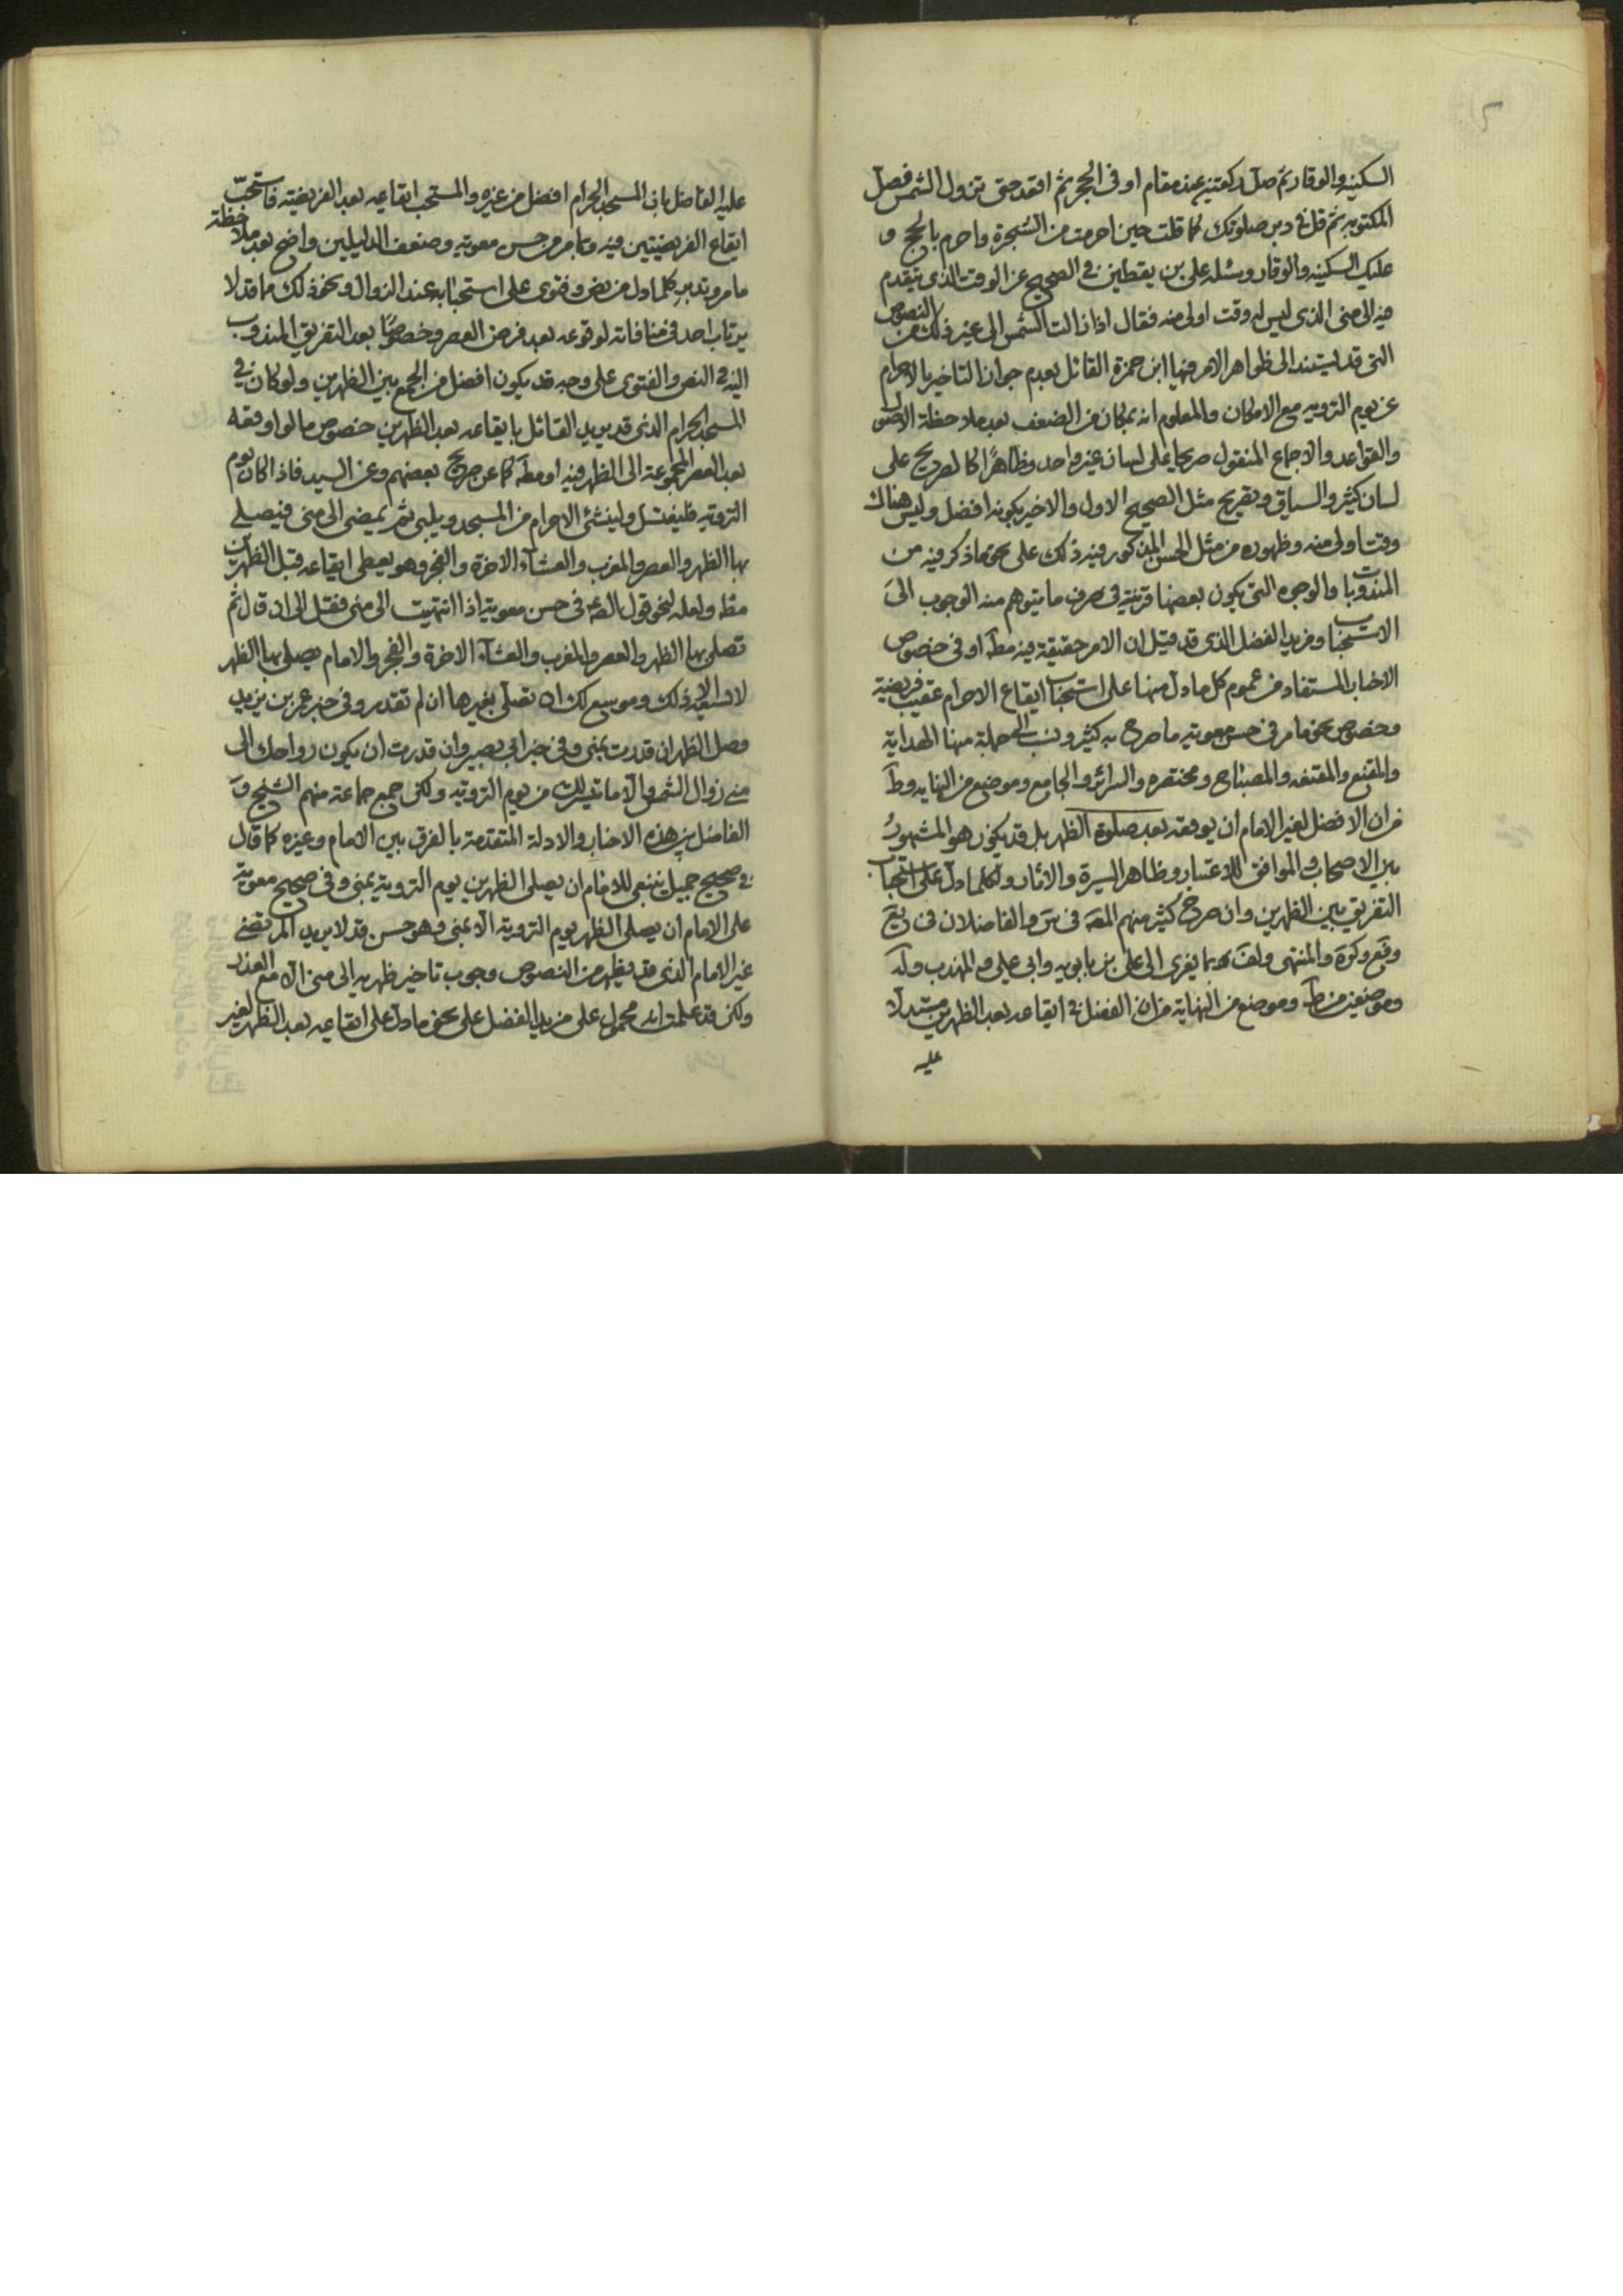 السكينة والوقار ثم صل ركعتين عند مقام او في الحجر ثم اقعد حتى تزول الشمس فصل
المكتوبة ثم قل في دبر صلوتك كما قلت حين احرمت من الشجرة واحرم بالحج و
عليك السكينه والوقار وسئله علي بن يقطين في الصحيح عن الوقت الذي يتقدم
فيه الى منى الذي ليس له وقت اولى منه فقال اذا زالت الشمس الى غير ذلك من النصوص
التي قد يستند الى ظواهر الامر فيها ابن حمزة القائل بعدم جواز التاخير بالاحرام
عن يوم التروية مع الامكان والمعلوم انه بمكان من الضعف بعد ملاحظة الاصول
والقواعد والاجماع المنقول صريحا على لسان غير واحد وظاهرًا كالصريح على
لسان كثير والسياق وتصريح مثل الصحيح الاول والاخير بكونه افضل وليس هناك
وقت اولى منه وظهوره من مثل الحسن المذكور فيه ذلك على نحو ما ذكر فيه من
المندوبات والوجوه التي يكون بعضها قرينة في صرف ما يتوهم منه الوجوب الى
الاستحباب ومزيد الفضل الذي قد قيل ان الامر حقيقة فيه مطَ او في خصوص
الاخبار المستفاد من عموم كل ما دل منها على استحباب ايقاع الاحرام عقيب فريضة
وخصوص نحو ما مر في حسن معوية ما صرح به كثير ونسب الى جملة منها الهداية
والمقنع والمقنعه والمصباح ومختصره والسرائر والجامع وموضع من النهايه وطَ
من ان الافضل لغير الامام ان يوقعه بعد صلوة الظهر بل قد يكون هو المشهورُ
بين الاصحاب والموافق للاعتبار وظاهر السيرة والاثار ولكلما دل على استحباب
التفريق بين الظهرين وان صرح كثير منهم المصَ في سَ والفاضلان في يَع
وفَع وكرَة والمنتهى ولفَ كما يعزى الى علي بن بابويه وابي علي وه المهذب ولَه
وموضعين من طَ وموضع من النهاية من ان الفضل في ايقاعه بعد الظهرين مستدلا
عليه
عليه الفاضل بان المسجد الحرام افضل من غيره والمستحب ايقاعه بعد الفريضة فاستحبّ
ايقاع الفريضتين فيه وبما مر من حسن معوية وضعف الدليلين واضح بعد ملاحظة
ما مر وتدبر كلما دل من نص وفتوى على استحبابه عند الزوال ونحو ذلك مما قد لا
يرتاب احد في منافاته لوقوعه بعد فرض العصر وخصوصًا بعد التفريق المندوب
اليه في النص والفتوى على وجه قد يكون افضل من الجمع بين الظهرين ولو كان في
المسجد الحرام الذي قد يريد القائل بايقاعه بعد الظهرين خصوص ما لو اوقعه
بعد العصر المجموعة الى الظهر فيه او مطَ كما عن صريح بعضهم وعن السيد فاذا كان يوم
التروية فليغتسل ولينشئ الاحرام من المسجد ويلبي ثم يمضى الى منى فيصلي
بها الظهر والعصر والمغرب والعشاء الاخرة والفجر وهو يعطى ايقاعه قبل الظهرين
مطَ ولعله لنحو قول الصَ في حسن معوية اذا انتهيت الى منى فقل الى ان قال ثم
تصلى بها الظهر والعصر والمغرب والعشاء الاخرة والفجر والامام يصلى بها الظهر
لا يسعه الا ذلك وموسع لك ان تصلى بغيرها ان لم تقدر وفي خبر عمر بن يزيد
وصل الظهر ان قدرت بمنى وفي خبر ابي بصير وان قدرت ان يكون رواحك الى
منى زوال الشمس والا ما تيسر لك من يوم التروية ولكن جمع جماعة منهم الشيخ وَ
الفاضل بين هذه الاخبار والادلة المتقدمة بالفرق بين الامام وغيره كما قال
في صحيح جميل ينبغي للامام ان يصلى الظهرين يوم التروية بمنى وفي صحيح معوية
على الامام ان يصلى الظهر يوم التروية الا بمنى وهو حسن قد لا يريد المرتضى
غير الامام الذي قد يظهر من النصوص وجوب تاخير ظهريه الى منى الا مع العذر
ولكن قد علمت انه محمول على مزيد الفضل على نحو ما دل على ايقاعه بعد الظهر لغير